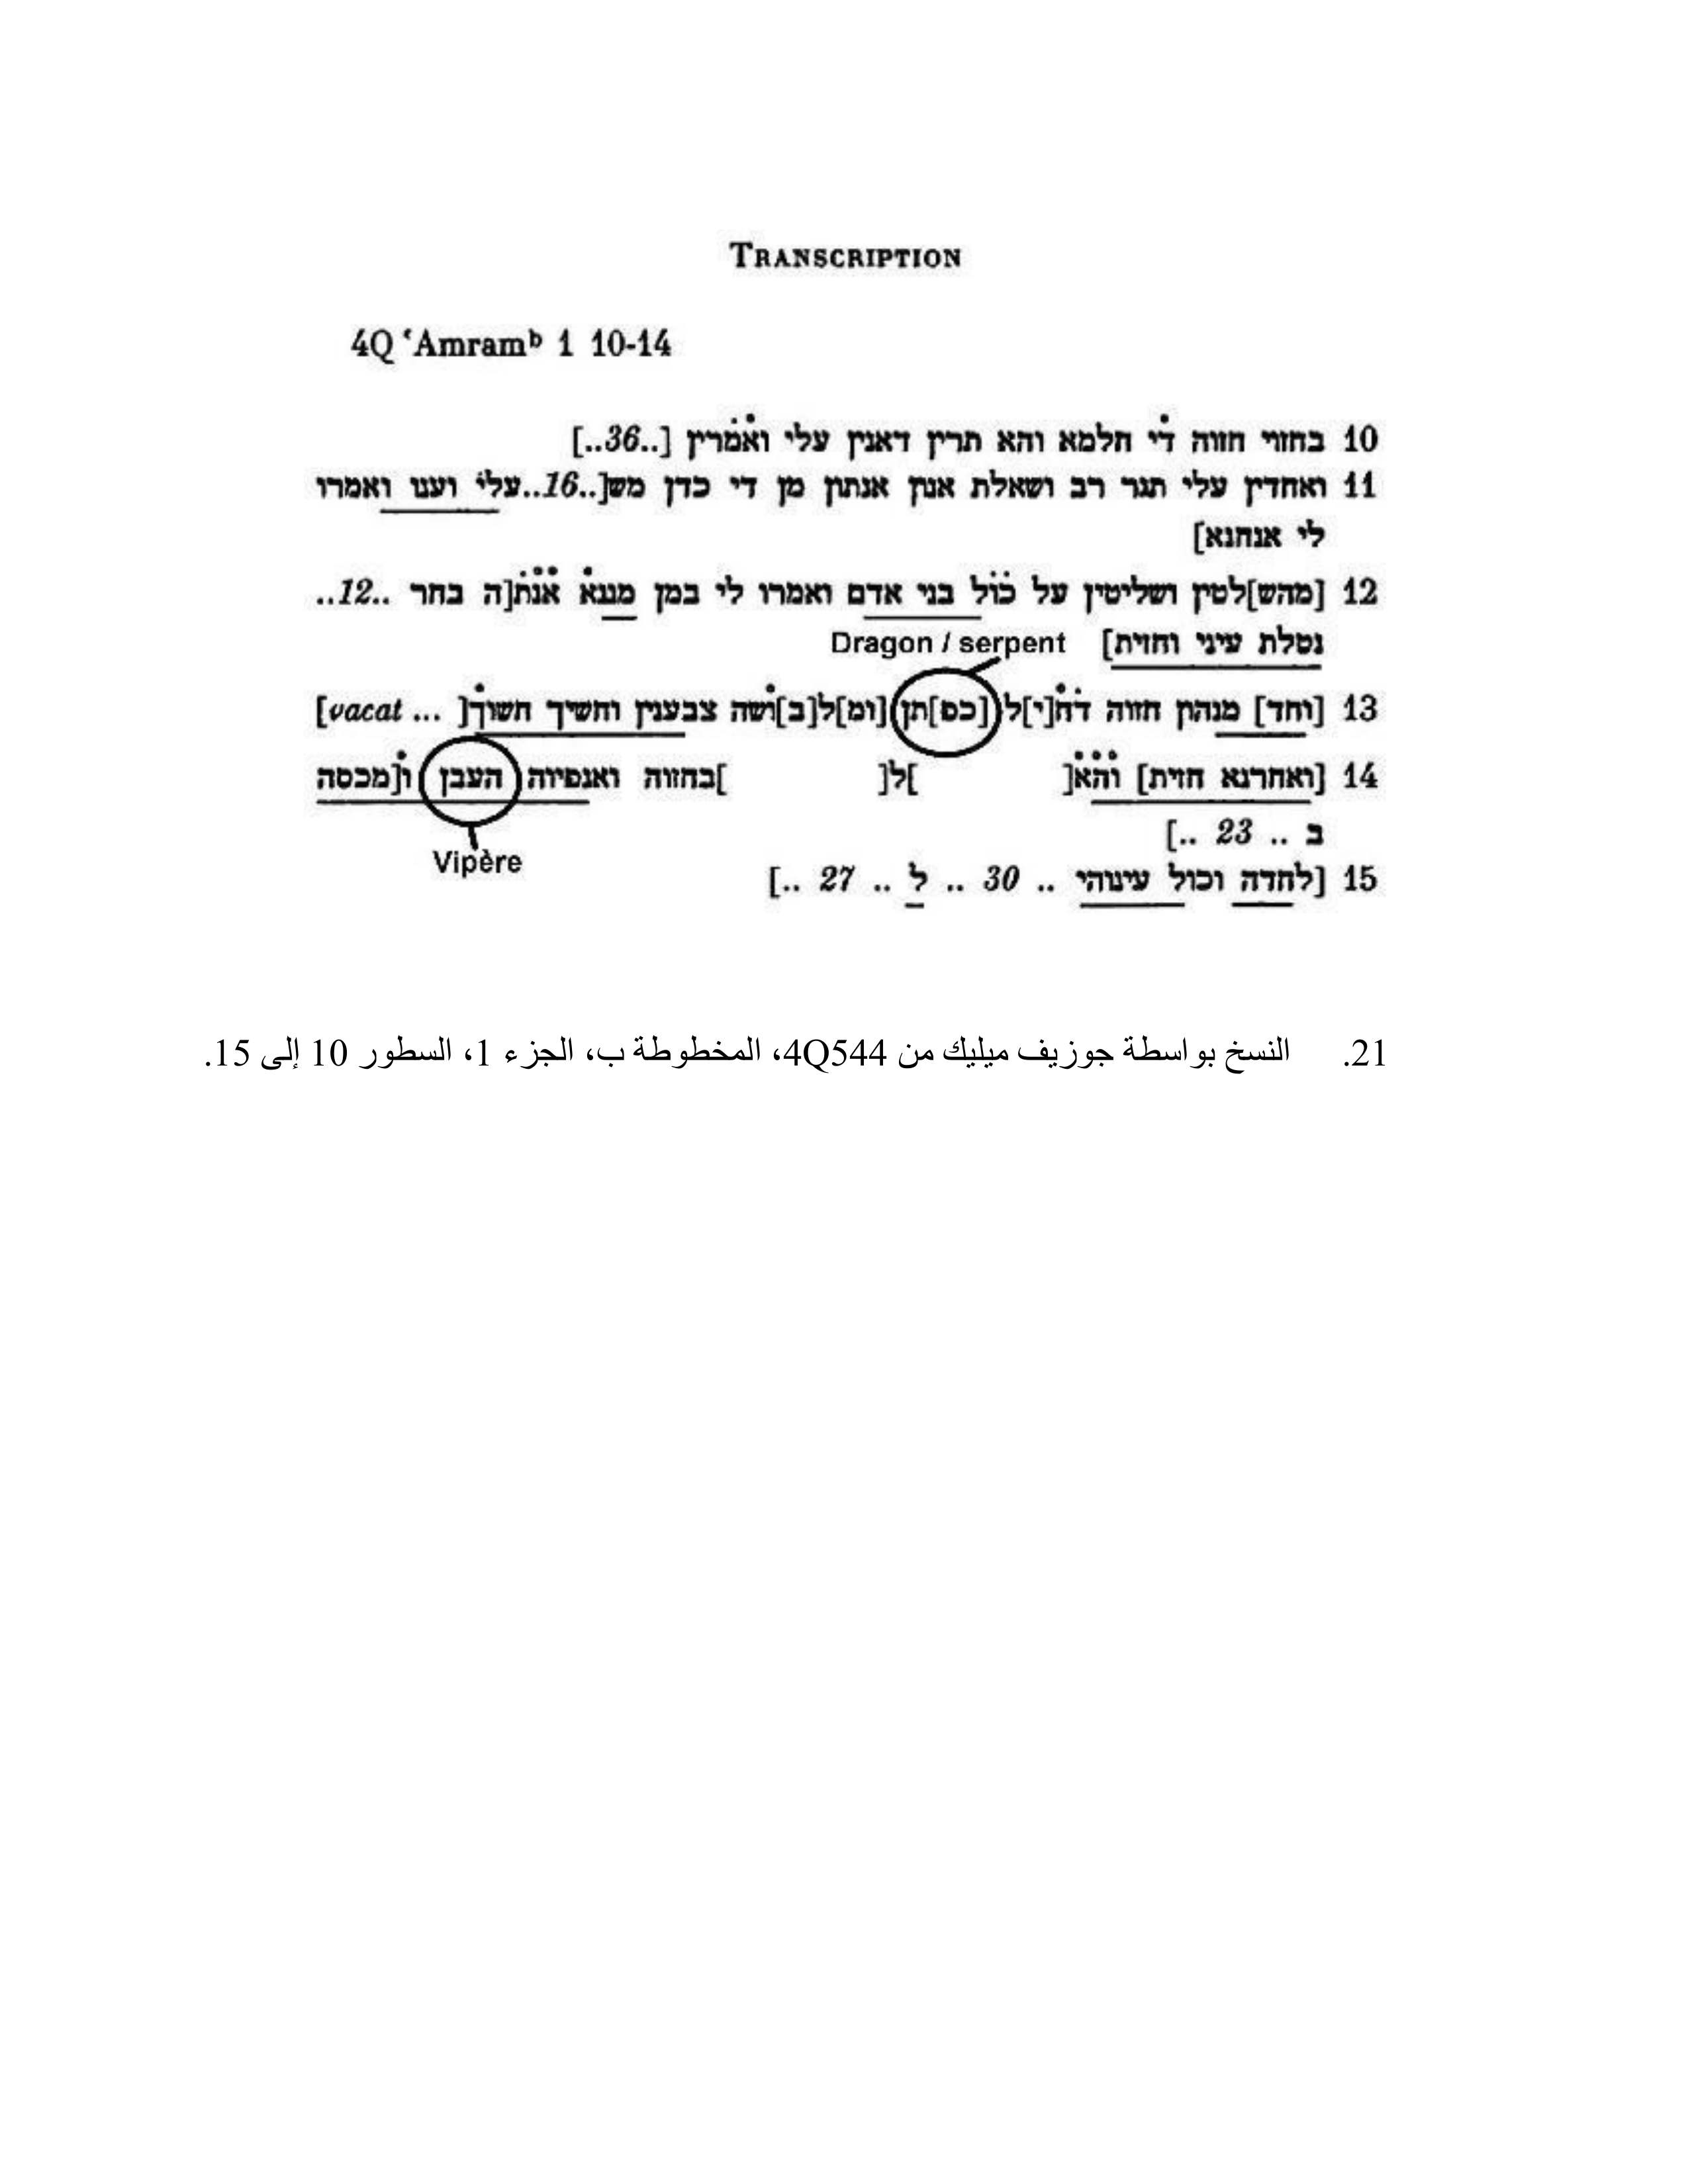 TRANSCRIPTION
4Q ‘Amramᵇ 1 10-14
10 בחזוי חזוה די חלמא והא תרין דאנין עלי ואמרין [..36..]
11 ואחדין עלי תגר רב ושאלת אנון אנתון מן די כדן מש[..16..עלי וענו ואמרו
לי אנחנא]
12 [מהש]לטין ושליטין על כול בני אדם ואמרו לי במן מננא אנת[ה בחר ..12..
נטלת עיני וחזית]
Dragon / serpent
13 [וחד] מנהון חזוה דח[י]ל [כפ]תן [ומ]ל[ב]ושה צבענין וחשיך חשוך[ ... vacat]
14 [ואחרנא חזית] והא[ ]ל[ ]בחזוה ואנפיוה העכן ו[מכסה
ב .. 23 ..]
Vipère
15 [לחדה וכול עינוהי .. 30 .. ל .. 27 ..]
21. النسخ بواسطة جوزيف ميليك من 4Q544، المخطوطة ب، الجزء 1، السطور 10 إلى 15.